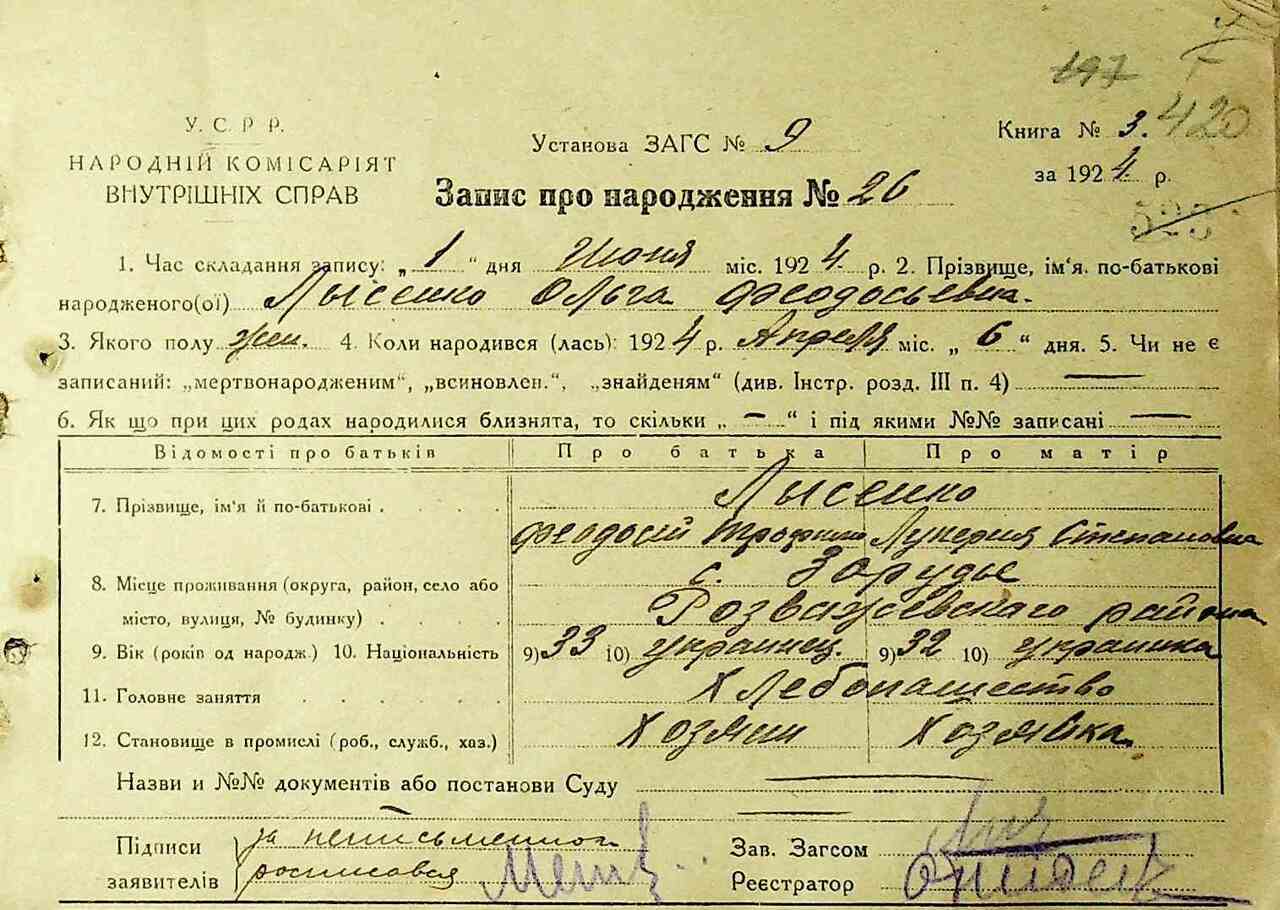 197
420
У. С. Р Р.
НАРОДНІЙ КОМІСАРІЯТ
ВНУТРІШНІХ СПРАВ
Установа ЗАГС № 9
Книга № 3.
за 1924 р.
Запис про народження № 26
523
1. Час складання запису: „ 1 “ дня Июня міс. 1924 р. 2. Прізвище, ім'я. по-батькові
народженого(ої) Лысенко Ольга Феодосьевна.
3. Якого полу жен. 4. Коли народився (лась): 1924 р. Апреля міс. „ 6 “ дня. 5. Чи не є
записаний: „мертвонародженим“, „всиновлен.“, „знайденям“ (див. Інстр. розд. III п. 4) —
6. Як що при цих родах народилися близнята, то скільки „ — “ і під якими №№ записані —
Відомості про батьків Про батька Про матір
7. Прізвище, ім'я й по-батькові . . . . Лысенко
Феодосій Трофимов Лукерия Степановна
8. Місце проживання (округа, район, село або с. Зарудье
місто, вулиця, № будинку) . . . . Розважевскаго района
9. Вік (років од народж.) 10. Національність 9) 33 10) украинец. 9) 32 10) украинка
11. Головне заняття . . . . . Хлебопашество
12. Становище в промислі (роб., служб., хаз.) Хозяин Хозяйка
Назви и №№ документів або постанови Суду —
Підписи за неписьменного Зав. Загсом
заявителів росписовся Реєстратор